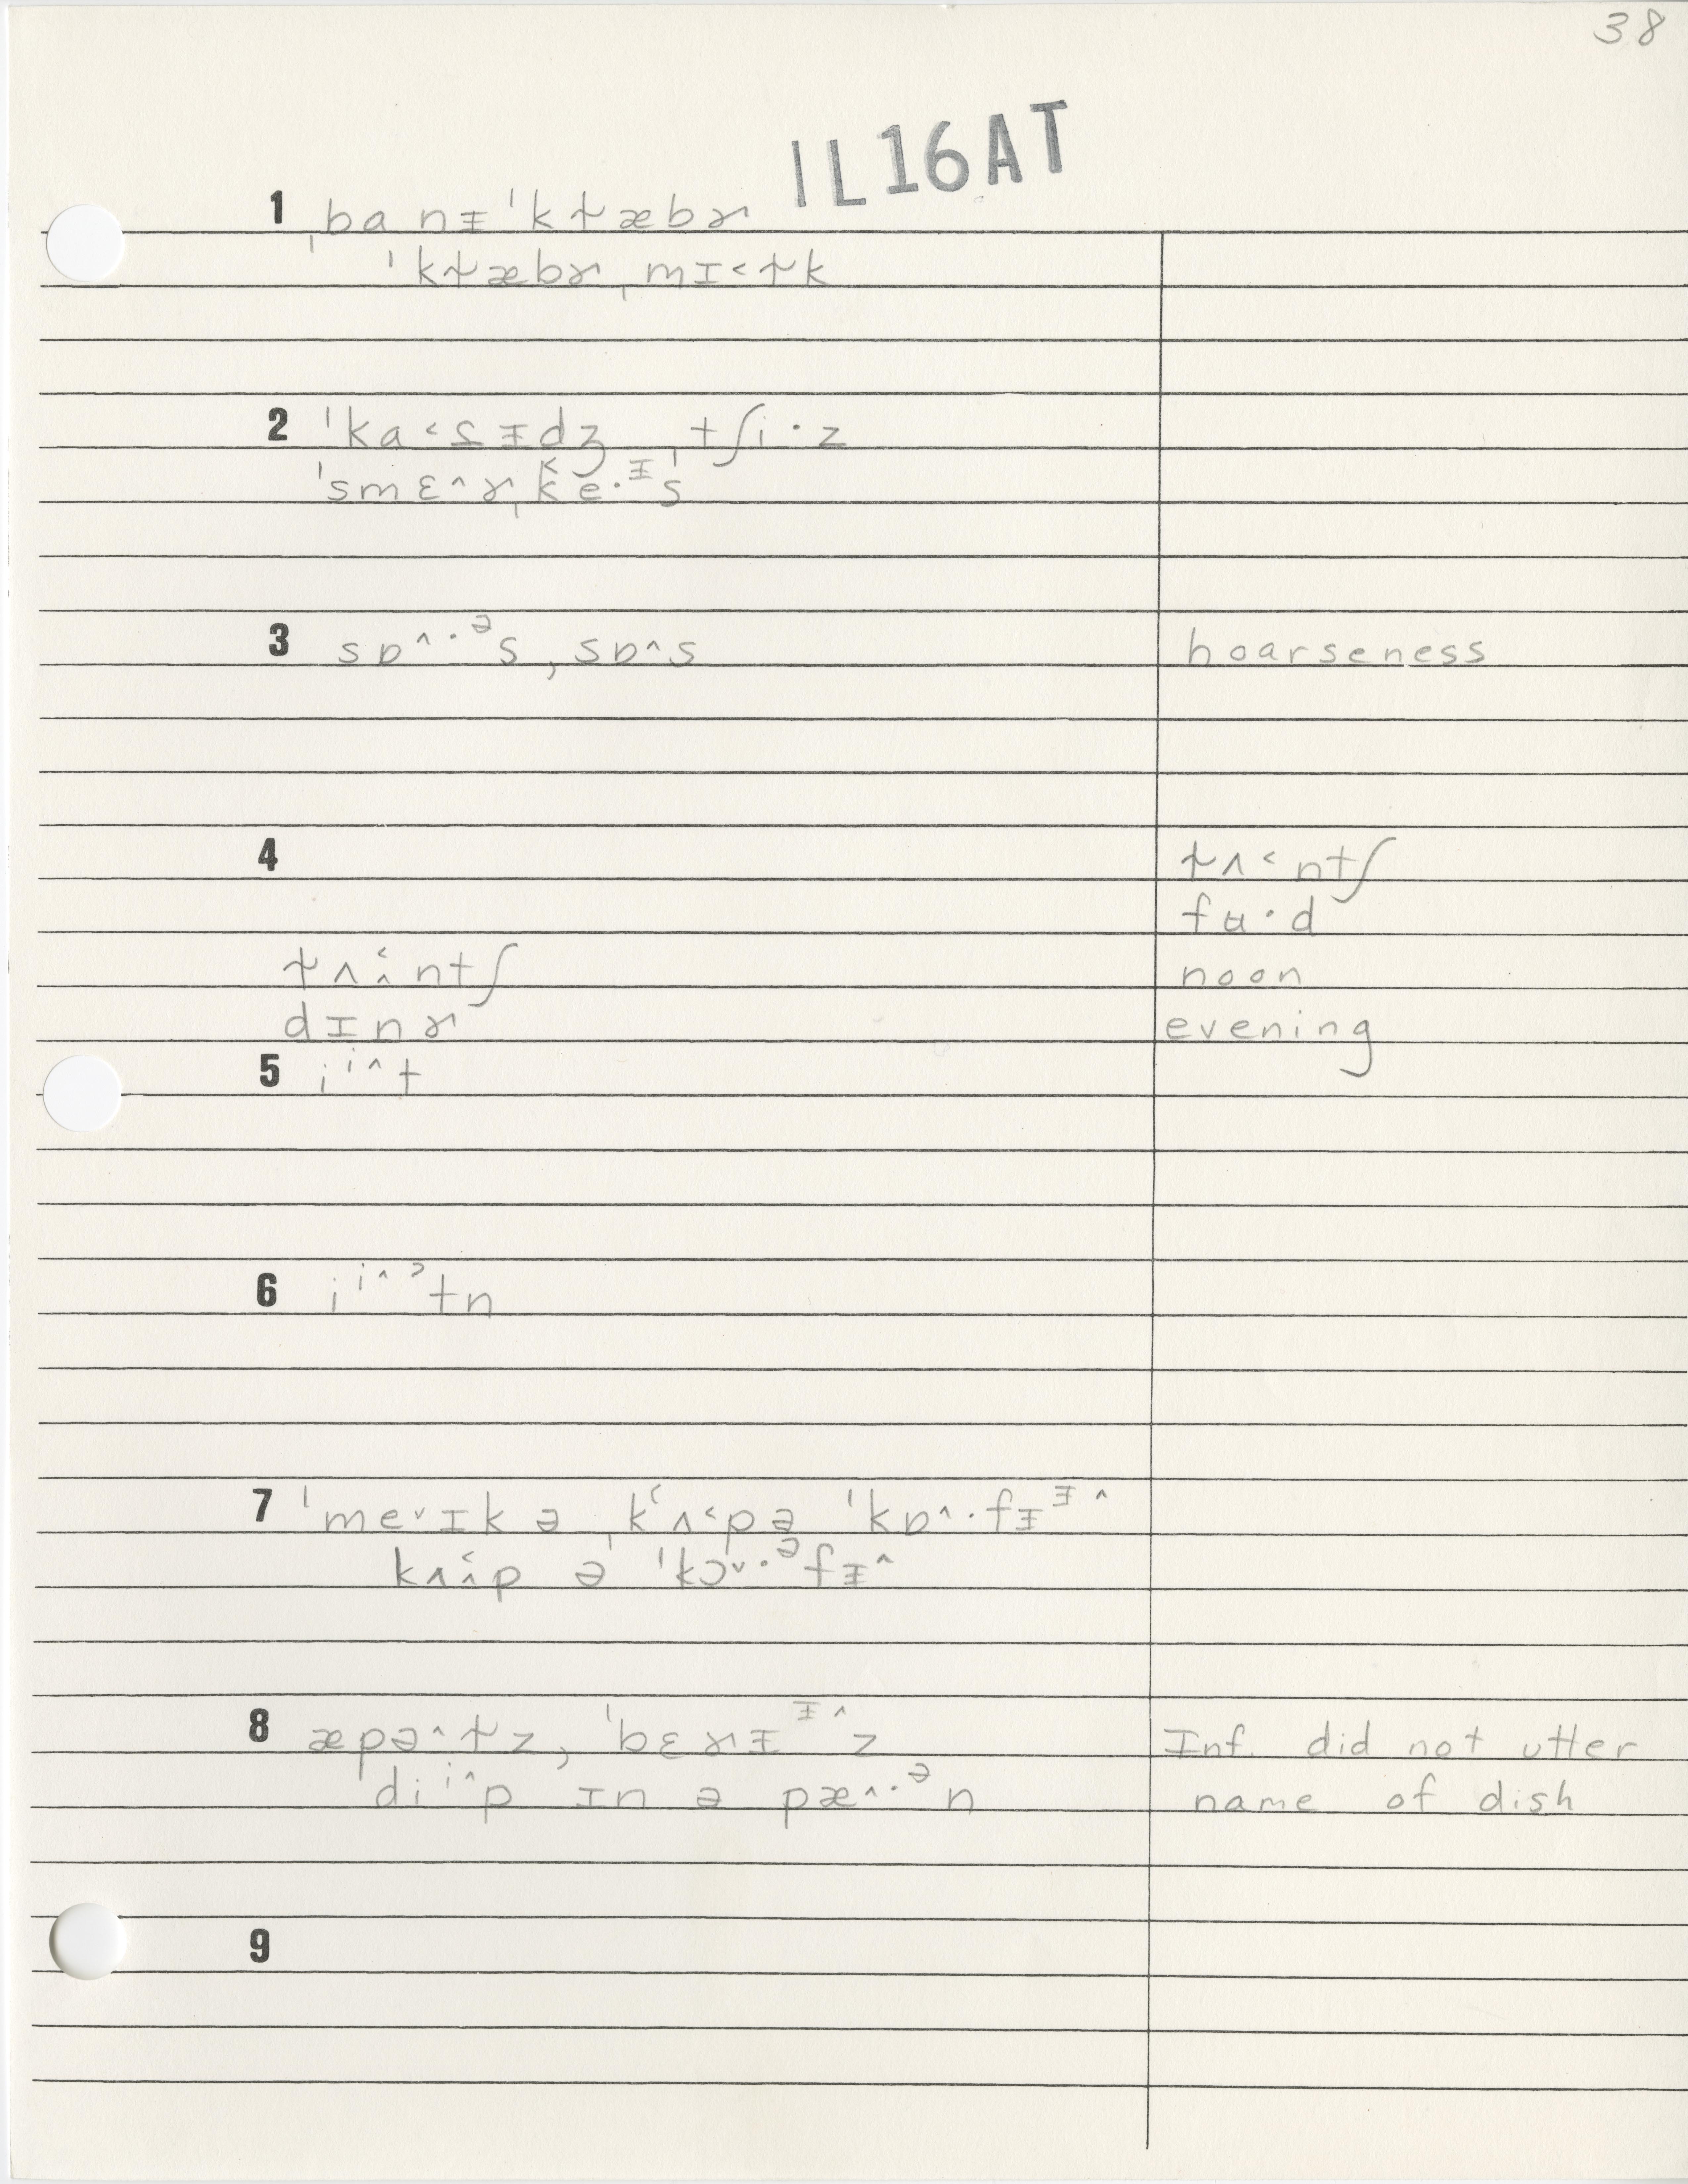 38
IL16AT
1 ˌba nᵻˈkɫæbɚ
ˈkɫæbɚˌmɪ˂ɫk
2 ˈka˂t̬ᵻdʒ ˌtʃi·z
ˈsmɛ^ɚˌk̬e·ᵻs
3 sɒ^·ᵊs, sɒ^s hoarseness
4 ɫʌ˂ntʃ
fʉ·d
ɫʌ˂^ntʃ noon
dɪnɚ evening
5 iⁱ^t
6 iⁱ^˃tn
7 ˈme˅ɪk ə ˌkʻʌ˂pə ˈkɒ^·fᵻᵻ^
kʌ˂^p ə ˈkɔ˅·ᵊfᵻ^
8 æpə^ɫz, ˈbɛɚᵻᵻ^z Inf. did not utter
diⁱ^p ɪn ə pæ^·ᵊn name of dish
9